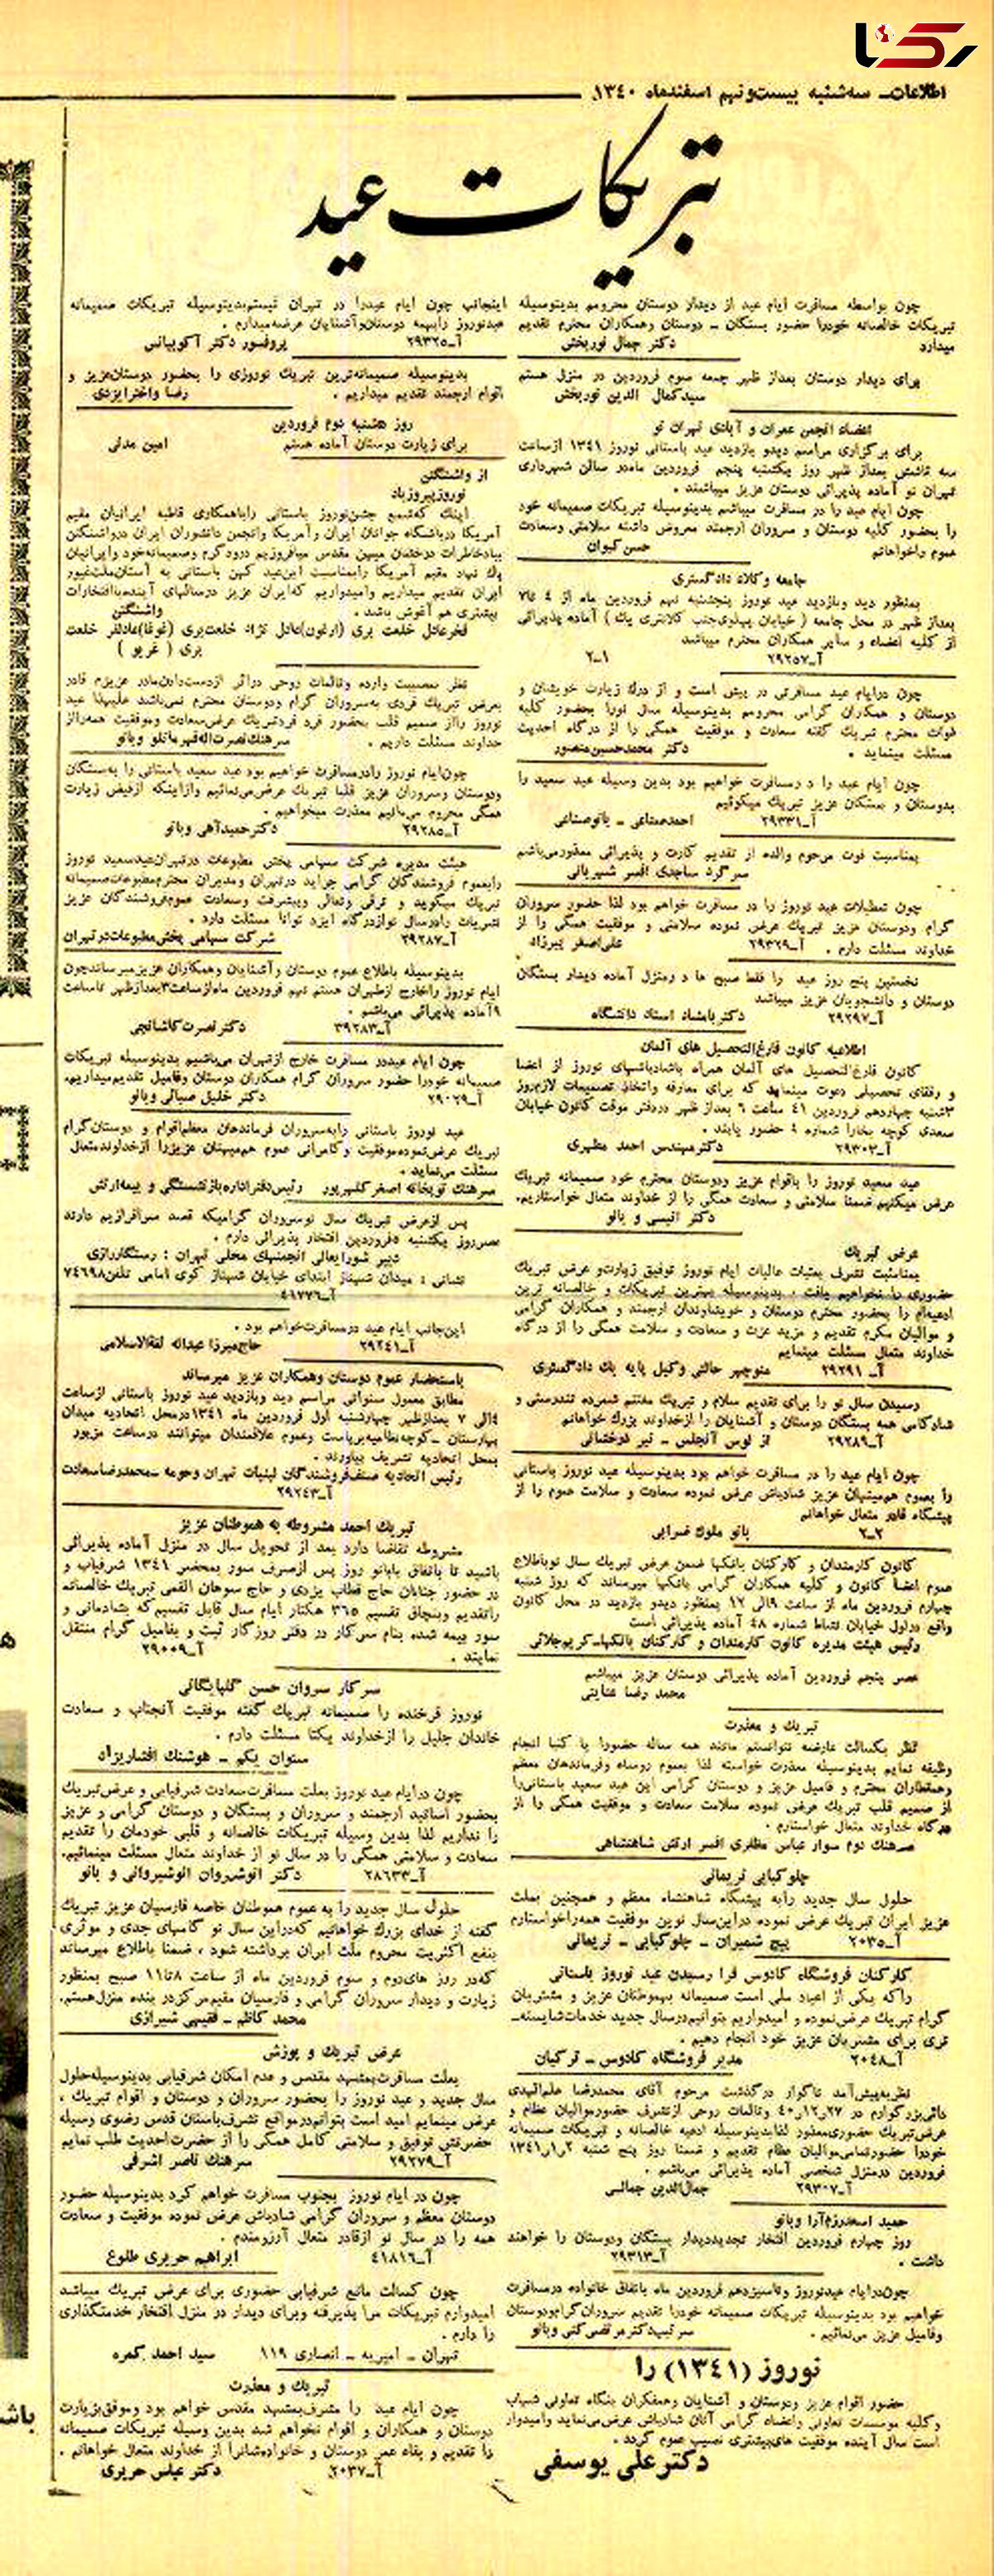 رکنا
اطلاعات ـ سه‌شنبه بیست‌ونهم اسفندماه ۱۳۴۰
تبریکات عید
چون بواسطه مسافرت ایام عید از دیدار دوستان محرومم بدینوسیله
تبریکات خالصانه خودرا حضور بستگان ـ دوستان وهمکاران محترم تقدیم
میدارد
دکتر جمال نوربخش
برای دیدار دوستان بعداز ظهر جمعه سوم فروردین در منزل هستم
سیدکمال الدین نوربخش
اعضاء انجمن عمران و آبادی تهران نو
برای برگزاری مراسم دیدو بازدید عید باستانی نوروز ۱۳۴۱ ازساعت
سه تاشش بعداز ظهر روز یکشنبه پنجم فروردین ماه‌در سالن شهرداری
تهران نو آماده پذیرائی دوستان عزیز میباشند .
چون ایام عید را در مسافرت میباشم بدینوسیله تبریکات صمیمانه خود
را بحضور کلیه دوستان و سروران ارجمند معروض داشته سلامتی وسعادت
عموم راخواهانم
حسن کیوان
جامعه وکلاء دادگستری
بمنظور دید وبازدید عید نوروز پنجشنبه نهم فروردین ماه از ۴ تا۷
بعداز ظهر در محل جامعه ( خیابان پهلوی‌جنب کلانتری یک ) آماده پذیرائی
از کلیه اعضاء و سایر همکاران محترم میباشد
آ‌ـ۲۹۲۵۷ ۱ـ۲
چون درایام عید مسافرتی در پیش است و از درک زیارت خویشان و
دوستان و همکاران گرامی محرومم بدینوسیله سال نورا بحضور کلیه
ذوات محترم تبریک گفته سعادت و موفقیت همگی را از درگاه احدیت
مسئلت مینماید .
دکتر محمدحسین‌منصور
چون ایام عید را د رمسافرت خواهیم بود بدین وسیله عید سعید را
بدوستان و بستگان عزیز تبریک میگوئیم
آ‌ـ۲۹۳۳۱ احمدصناعی ـ بانوصناعی
بمناسبت فوت مرحوم والده از تقدیم کارت و پذیرائی معذورمی‌باشم
سرگرد ساجدی افسر شهربانی
چون تعطیلات عید نوروز را در مسافرت خواهم بود لذا حضور سروران
گرام ودوستان عزیز تبریک عرض نموده سلامتی و موفقیت همگی را از
خداوند مسئلت دارم . آ‌ـ۲۹۳۲۹ علی‌اصغر پیرزاد
نخستین پنج روز عید را فقط صبح ها د رمنزل آماده دیدار بستگان
دوستان و دانشجویان عزیز میباشد
آ‌ـ۲۹۲۹۷ دکتربامشاد استاد دانشگاه
اطلاعیه کانون فارغ‌التحصیل های آلمان
کانون فارغ‌التحصیل های آلمان همراه باشادباشهای نوروز از اعضا
و رفقای تحصیلی دعوت مینماید که برای معارفه واتخاذ تصمیمات لازم‌روز
۳شنبه چهاردهم فروردین ۴۱ ساعت ۶ بعداز ظهر دردفتر موقت کانون خیابان
سعدی کوچه بخارا شماره ۸ حضور یابند .
آ‌ـ۲۹۳۰۳ دکترمهندس احمد مظهری
عید سعید نوروز را باقوام عزیز ودوستان محترم خود صمیمانه تبریک
عرض میکنیم ضمنا سلامتی و سعادت همگی را از خداوند متعال خواستاریم.
دکتر انیسی و بانو
عرض تبریک
بمناسبت تشرف بعتبات عالیات ایام نوروز توفیق زیارت‌و عرض تبریک
حضوری را نخواهیم یافت . بدینوسیله بهترین تبریکات و خالصانه ترین
ادعیه‌ام را بحضور محترم دوستان و خویشاوندان ارجمند و همکاران گرامی
و موالیان مکرم تقدیم و مزید عزت و سعادت و سلامت همگی را از درگاه
خداوند متعال مسئلت مینمایم
آ‌ـ ۲۹۲۹۱ منوچهر حالتی وکیل پایه یک دادگستری
رسیدن سال نو را برای تقدیم سلام و تبریک مغتنم شمرده تندرستی و
شادکامی همه بستگان دوستان و آشنایان را ازخداوند بزرگ خواهانم
آ‌ـ۲۹۲۸۹ از لوس آنجلس ـ نیر درخشانی
چون ایام عید را در مسافرت خواهم بود بدینوسیله عید نوروز باستانی
را بعموم هم‌میهنان عزیز شادباش عرض نموده سعادت و سلامت عموم را از
پیشگاه قادر متعال خواهانم
۲ـ۲ بانو ملوک ضرابی
کانون کارمندان و کارکنان بانکها ضمن عرض تبریک سال نوباطلاع
عموم اعضا کانون و کلیه همکاران گرامی بانکها میرساند که روز شنبه
چهارم فروردین ماه از ساعت ۹الی ۱۲ بمنظور دیدو بازدید در محل کانون
واقع دراول خیابان نشاط شماره ۴۸ آماده پذیرائی است
رئیس هیئت مدیره کانون کارمندان و کارکنان بانکهاـ کریم‌جلائی
عصر پنجم فروردین آماده پذیرائی دوستان عزیز میباشم
محمد رضا عنایتی
تبریک و معذرت
نظر بکسالت عارضه نتوانستم مانند همه ساله حضورا یا کتبا انجام
وظیفه نمایم بدینوسیله معذرت خواسته لذا بعموم روساء وفرماندهان معظم
وهمقطاران محترم و فامیل عزیز و دوستان گرامی این عید سعید باستانی‌را
از صمیم قلب تبریک عرض نموده سلامت سعادت و موفقیت همگی را از
درگاه خداوند متعال خواستارم .
سرهنک دوم سوار عباس مظفری افسر ارتش شاهنشاهی
چلوکبابی نریمانی
حلول سال جدید رابه پیشگاه شاهنشاه معظم و همچنین بملت
عزیز ایران تبریک عرض نموده دراین‌سال نوین موفقیت همه‌راخواستارم
آ‌ـ۲۰۳۵ پیچ شمیران ـ چلوکبابی ـ نریمانی
کارکنان فروشگاه کادوس فرا رسیدن عید نوروز باستانی
راکه یکی از اعیاد ملی است صمیمانه بهموطنان عزیز و مشتریان
گرام تبریک عرض‌نموده و امیدواریم بتوانیم‌درسال جدید خدمات‌شایسته‌ـ
تری برای مشتریان عزیز خود انجام دهیم .
آ‌ـ۲۰۴۸ مدیر فروشگاه کادوس ـ ترکیان
نظربه‌پیش‌آمد ناگوار درگذشت مرحوم آقای محمدرضا علم‌الهدی
دائی‌بزرگوارم در ۴۰ر۱۲ر۲۷ وتالمات روحی ازتشرف حضورموالیان عظام و
عرض‌تبریک حضوری‌معذور لذابدینوسیله ادعیه خالصانه و تبریکات صمیمانه
خودرا حضورتمامی‌موالیان عظام تقدیم و ضمنا روز پنج شنبه ۱۳۴۱ر۱ر۲
فروردین درمنزل شخصی آماده پذیرائی می‌باشم .
آ‌ـ۲۹۳۰۷ جمال‌الدین جمالی
حمید اسعدرزم‌آرا وبانو
روز چهارم فروردین افتخار تجدیددیدار بستگان ودوستان را خواهند
داشت . آ‌ـ۲۹۳۱۳
چون‌درایام عیدنوروز وتاسیزدهم فروردین ماه باتفاق خانواده درمسافرت
خواهیم بود بدینوسیله تبریکات صمیمانه خودرا تقدیم سروران‌گرام‌ودوستان
وفامیل عزیز می‌نمائیم . سرتیپ‌دکتر مرتضی‌کنی وبانو
نوروز (۱۳۴۱) را
حضور اقوام عزیز ودوستان و آشنایان وهمفکران بنگاه تعاونی شهاب
وکلیه موسسات تعاونی واعضاء گرامی آنان شادباش عرض‌می‌نماید وامیدوار
است سال آینده موفقیت های‌بیشتری نصیب عموم گردد .
دکترعلی یوسفی
اینجانب چون ایام عیدرا در تهران نیستم‌بدینوسیله تبریکات صمیمانه
عیدنوروز رابهمه دوستان‌وآشنایان عرضه‌میدارم .
آ‌ـ۲۹۳۲۵ پروفسور دکتر آکوپیانس
بدینوسیله صمیمانه‌ترین تبریک نوروزی را بحضور دوستان‌عزیز و
اقوام ارجمند تقدیم میداریم . رضا واختر‌ایزدی
روز هشنبه دوم فروردین
برای زیارت دوستان آماده هستم امین مدنی
از واشنگتن
نوروزپیروزباد
اینک که‌شمع جشن‌نوروز باستانی راباهمکاری قاطبه ایرانیان مقیم
آمریکا درباشگاه جوانان ایران وآمریکا وانجمن دانشوران ایران درواشنگتن
بیادخاطرات درخشان میهن مقدس میافروزیم درودگرم وصمیمانه‌خود وایرانیان
پاک نهاد مقیم آمریکا رابمناسبت این‌عید کهن باستانی به آستان‌ملت‌غیور
ایران تقدیم میداریم وامیدواریم که‌ایران عزیز درسالهای آینده‌باافتخارات
بیشتری هم آغوش باشد . واشنگتن
فخرعادل خلعت بری (ارغون)عادل نژاد خلعت‌بری (غوغا)عادلفر خلعت
بری ( غریو )
نظر بمصیبت وارده وتالمات روحی دراثر ازدست‌دادن‌مادر عزیزم قادر
بعرض تبریک فردی به‌سروران گرام ودوستان محترم نمی‌باشد علیهذا عید
نوروز رااز صمیم قلب بحضور فرد فردتبریک عرض‌سعادت وموفقیت همه‌رااز
خداوند مسئلت داریم . سرهنک‌نصرت‌اله‌قهرمانلو وبانو
چون‌ایام نوروز رادرمسافرت خواهیم بود عید سعید باستانی را به‌بستگان
ودوستان وسروران عزیز قلبا تبریک عرض‌می‌نمائیم وازاینکه ازفیض زیارت
همگی محروم می‌مانیم معذرت میخواهیم .
آ‌ـ۲۹۲۸۵ دکترحمیدآهی وبانو
هیئت مدیره شرکت سهامی پخش مطبوعات درتهران‌عیدسعید نوروز
رابعموم فروشندگان گرامی جراید درتهران ومدیران محترم‌مطبوعات‌صمیمانه
تبریک میگوید و ترقی وتعالی وپیشرفت وسعادت عموم‌فروشندگان عزیز
نشریات رادرسال نوازدرگاه ایزد توانا مسئلت دارد .
آ‌ـ۲۹۲۸۷ شرکت سهامی پخش‌مطبوعات‌درتهران
بدینوسیله باطلاع عموم دوستان وآشنایان وهمکاران عزیزمیرساندچون
ایام نوروز راخارج ازطهران هستم نهم فروردین ماه‌ازساعت۳بعدازظهر تاساعت
۹آماده پذیرائی می‌باشم .
آ‌ـ۲۹۲۸۳ دکترنصرت‌کاشانچی
چون ایام عیددر مسافرت خارج ازتهران می‌باشیم بدینوسیله تبریکات
صمیمانه خودرا حضور سروران گرام همکاران دوستان وفامیل تقدیم‌میداریم.
آ‌ـ۲۹۰۲۹ دکتر خلیل صبائی وبانو
عید نوروز باستانی رابه‌سروران فرماندهان معظم‌اقوام و دوستان‌گرام
تبریک عرض‌نموده‌موفقیت وکامرانی عموم هم‌میهنان عزیزرا ازخداوندمتعال
مسئلت می‌نماید .
سرهنک توپخانه اصغر گلسپهر رئیس‌دفتر‌اداره‌بازنشستگی و بیمه‌ارتش
پس ازعرض تبریک سال نوسروران گرامیکه قصد سرافرازیم دارند
عصرروز یکشنبه ۵فروردین افتخار پذیرائی دارم .
دبیر شورایعالی انجمنهای محلی تهران : رستگاررازی
نشانی : میدان شهناز ابتدای خیابان شهناز کوی امامی تلفن۷۴۶۹۸
آ‌ـ۴۱۷۷۶
این‌جانب ایام عید درمسافرت‌خواهم بود .
آ‌ـ۲۹۲۴۱ حاج‌میرزا عبداله ثقة‌الاسلامی
باستحضار عموم دوستان وهمکاران عزیز میرساند
مطابق معمول سنواتی مراسم دید وبازدید عید نوروز باستانی ازساعت
۴الی ۷ بعدازظهر چهارشنبه اول فروردین ماه ۱۳۴۱درمحل اتحادیه میدان
بهارستان ـ کوچه‌نظامیه‌برپاست وعموم علاقمندان میتوانند درساعت مزبور
بمحل اتحادیه تشریف بیاورند .
رئیس اتحادیه صنف‌فروشندگان لبنیات تهران وحومه ـ‌محمدرضاسعادت
آ‌ـ۲۹۲۴۳
تبریک احمد مشروطه به هموطنان عزیز
مشروطه تقاضا دارد بعد از تحویل سال در منزل آماده پذیرائی
باشید تا باتفاق بابانو روز پس ازصرف سور بمحضر ۱۳۴۱ شرفیاب و
در حضور جنابان حاج قطاب یزدی و حاج سوهان القمی تبریک خالصانه
راتقدیم وبنچاق تقسیم ۳۶۵ هکتار ایام سال قابل تقسیم‌که بشادمانی و
سور بیمه شده بنام سرکار در دفتر روزگار ثبت و بفامیل گرام منتقل
نمایند . آ‌ـ۲۹۰۰۹
سرکار سروان حسن گلپایگانی
نوروز فرخنده را صمیمانه تبریک گفته موفقیت آنجناب و سعادت
خاندان جلیل را ازخداوند یکتا مسئلت دارم .
ستوان یکم ـ هوشنک افشارنژاد
چون درایام عید نوروز بعلت مسافرت‌سعادت شرفیابی و عرض‌تبریک
بحضور اساتید ارجمند و سروران و بستگان و دوستان گرامی و عزیز
را نداریم لذا بدین وسیله تبریکات خالصانه و قلبی خودمان را تقدیم
سعادت و سلامتی همگی را در سال نو از خداوند متعال مسئلت مینمائیم.
آ‌ـ۲۸۶۳۳ دکتر انوشیروان انوشیروانی و بانو
حلول سال جدید را به عموم هموطنان خاصه فارسیان عزیز تبریک
گفته از خدای بزرگ خواهانیم که‌دراین سال نو گامهای جدی و موثری
بنفع اکثریت محروم ملت ایران برداشته شود ، ضمنا باطلاع میرساند
که‌در روز های‌دوم و سوم فروردین ماه از ساعت ۸تا۱۱ صبح بمنظور
زیارت و دیدار سروران گرامی و فارسیان مقیم‌مرکز‌در بنده منزل‌هستم.
محمد کاظم ـ فقیهی شیرازی
عرض تبریک و پوزش
بعلت مسافرت‌بمشهد مقدس و عدم امکان شرفیابی بدینوسیله‌حلول
سال جدید و عید نوروز را بحضور سروران و دوستان و اقوام تبریک ،
عرض مینمایم امید است بتوانم‌درمواقع تشرف‌باستان قدس رضوی وسیله
حضرتش توفیق و سلامتی کامل همگی را از حضرت‌احدیت طلب نمایم
آ‌ـ۲۹۲۷۹ سرهنک ناصر اشرفی
چون در ایام نوروز بجنوب مسافرت خواهم کرد بدینوسیله حضور
دوستان معظم و سروران گرامی شادباش عرض نموده موفقیت و سعادت
همه را در سال نو ازقادر متعال آرزومندم .
آ‌ـ۴۱۸۱۶ ابراهیم حریری طلوع
چون کسالت مانع شرفیابی حضوری برای عرض تبریک میباشد
امیدوارم تبریکات مرا پذیرفته وبرای دیدار در منزل افتخار خدمتگذاری
را دارم .
تهران ـ امیریه ـ انصاری ۱۱۹ سید احمد کمره
تبریک و معذرت
چون ایام عید را مشرف‌بمشهد مقدس خواهم بود وموفق‌بزیارت
دوستان و همکاران و اقوام نخواهم شد بدین وسیله تبریکات صمیمانه
را تقدیم و بقاء عمر دوستان و خانواده‌شانرا از خداوند متعال خواهانم .
آ‌ـ۲۰۳۷ دکتر عباس حریری